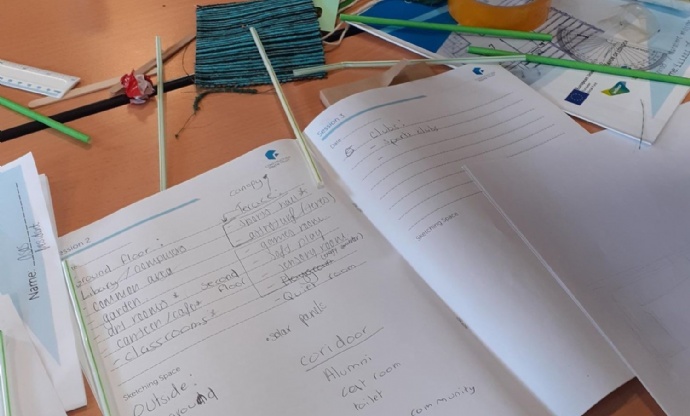 Session 2
Ground floor:
- Library / computers
- common area
- garden
- art rooms * Second floor
- canteen / cafe *
- classrooms *
canopy
sports hall *
astroturf
- games room
- soft play
- sensory rooms
- Quiet room
* solar panels
Sketching Space
Outside:
coridoor
Alumni
coat room
toilet
community
Session 3
Clubs:
Sketching Space
Name